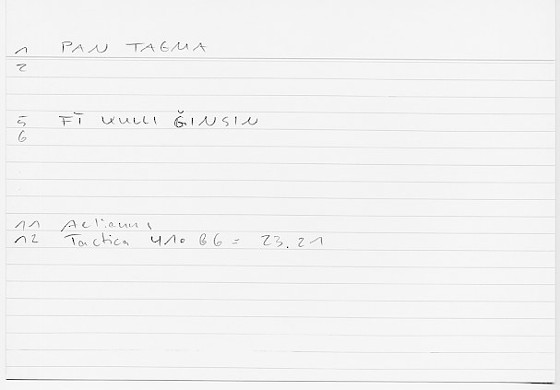 1 PAN TAGMA
2
5 FĪ KULLI ǦINSIN
6
11 Aelianus
12 Tactica 410 B6 = 23.21